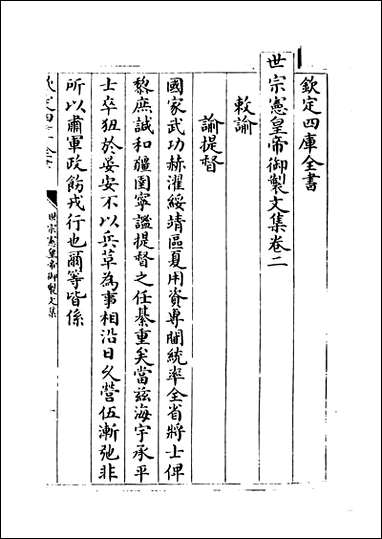 欽定四庫全書
世宗憲皇帝御製文集卷二
敕諭
諭提督
國家武功赫濯綏靖區夏用資專閫統率全省將士俾
黎庶誠和疆圉寧謐提督之任綦重矣當兹海宇承平
士卒狃於晏安不以兵革為事相沿日久營伍漸弛非
所以肅軍政飭戎行也爾等皆係
世宗憲皇帝御製文集